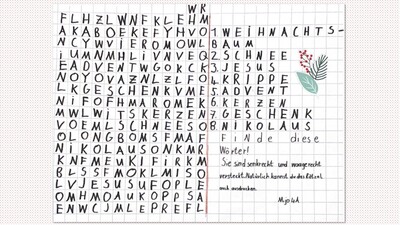 W R
F L H Z L W N F K L E H M
A K A B O E K E F Y H V O
N C Y W V I E R O M O W L
i U M N M H L I V N V E Q
E A D V E N T W G O K C K
N O Y O V A Z N L Z L F O
L K G E S C H E N K V M E
N i F O F H M A R O M E K
M W L W I T S K E R Z E N
V O E M L S C H N E E S O
O L O N G B O N S F M A F
N I K O L A U S O N K M R
K N F M E U K I F I R K M
B L S S F M O K L M I S O
L V J E S U S U E O P L E
O M H M O A U K O P P S A
E N W C J M L E P R E F L
1 WEIHNACHTS-
BAUM
2. SCHNEE
3. JESUS
4. KRIPPE
5. ADVENT
6. KERZEN
7. GESCHENK
8. NIKOLAUS
Finde diese
Wörter!
Sie sind senkrecht und waagerecht
versteckt. Natürlich kannst du das Rätsel
auch ausdrucken.